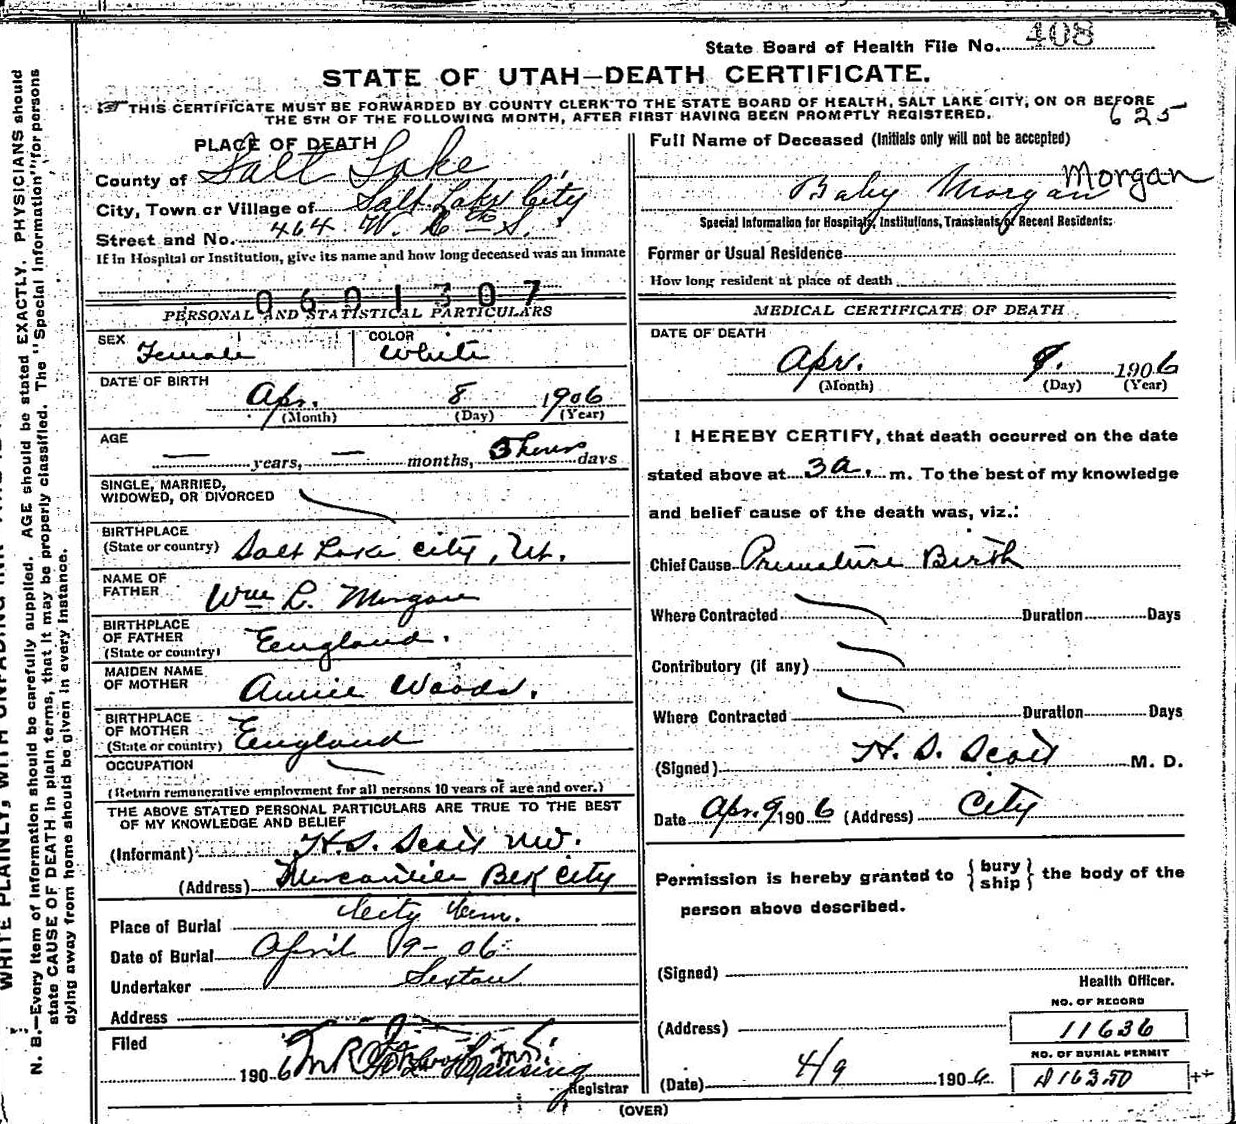 State Board of Health File No. 408
STATE OF UTAH—DEATH CERTIFICATE.
THIS CERTIFICATE MUST BE FORWARDED BY COUNTY CLERK TO THE STATE BOARD OF HEALTH, SALT LAKE CITY, ON OR BEFORE
THE 5TH OF THE FOLLOWING MONTH, AFTER FIRST HAVING BEEN PROMPTLY REGISTERED.
625
PLACE OF DEATH
County of Salt Lake
City, Town or Village of Salt Lake City
Street and No. 464 W. 6th S.
If in Hospital or Institution, give its name and how long deceased was an inmate
0601307
PERSONAL AND STATISTICAL PARTICULARS
SEX Female COLOR White
DATE OF BIRTH
Apr. 8 1906
(Month) (Day) (Year)
AGE
— years, — months, 3 hours days
SINGLE, MARRIED,
WIDOWED, OR DIVORCED
BIRTHPLACE
(State or country) Salt Lake City, Ut.
NAME OF
FATHER Wm L. Morgan
BIRTHPLACE
OF FATHER
(State or country) England.
MAIDEN NAME
OF MOTHER Annie Woods.
BIRTHPLACE
OF MOTHER
(State or country) England
OCCUPATION
(Return remunerative employment for all persons 10 years of age and over.)
THE ABOVE STATED PERSONAL PARTICULARS ARE TRUE TO THE BEST
OF MY KNOWLEDGE AND BELIEF
(Informant) H. S. Scott MD.
(Address) Mercantile Blk City
Place of Burial City Cem.
Date of Burial April 9-06
Undertaker Sexton
Address
Filed
1906
Registrar
Full Name of Deceased (Initials only will not be accepted)
Baby Morgan Morgan
Special Information for Hospitals, Institutions, Transients, or Recent Residents:
Former or Usual Residence
How long resident at place of death
MEDICAL CERTIFICATE OF DEATH
DATE OF DEATH
Apr. 9. 1906
(Month) (Day) (Year)
I HEREBY CERTIFY, that death occurred on the date
stated above at 3 a. m. To the best of my knowledge
and belief cause of the death was, viz.:
Chief Cause Premature Birth
Where Contracted Duration Days
Contributory (if any)
Where Contracted Duration Days
(Signed) H. S. Scott M. D.
Date Apr. 9, 1906 (Address) City
Permission is hereby granted to { bury ship } the body of the
person above described.
(Signed)
Health Officer.
NO. OF RECORD
(Address) 11636
NO. OF BURIAL PERMIT
(Date) 4/9 1906 A16350
(OVER)
N. B.—Every item of information should be carefully supplied. AGE should be stated EXACTLY. PHYSICIANS should
state CAUSE OF DEATH in plain terms, that it may be properly classified. The "Special Information" for persons
dying away from home should be given in every instance.